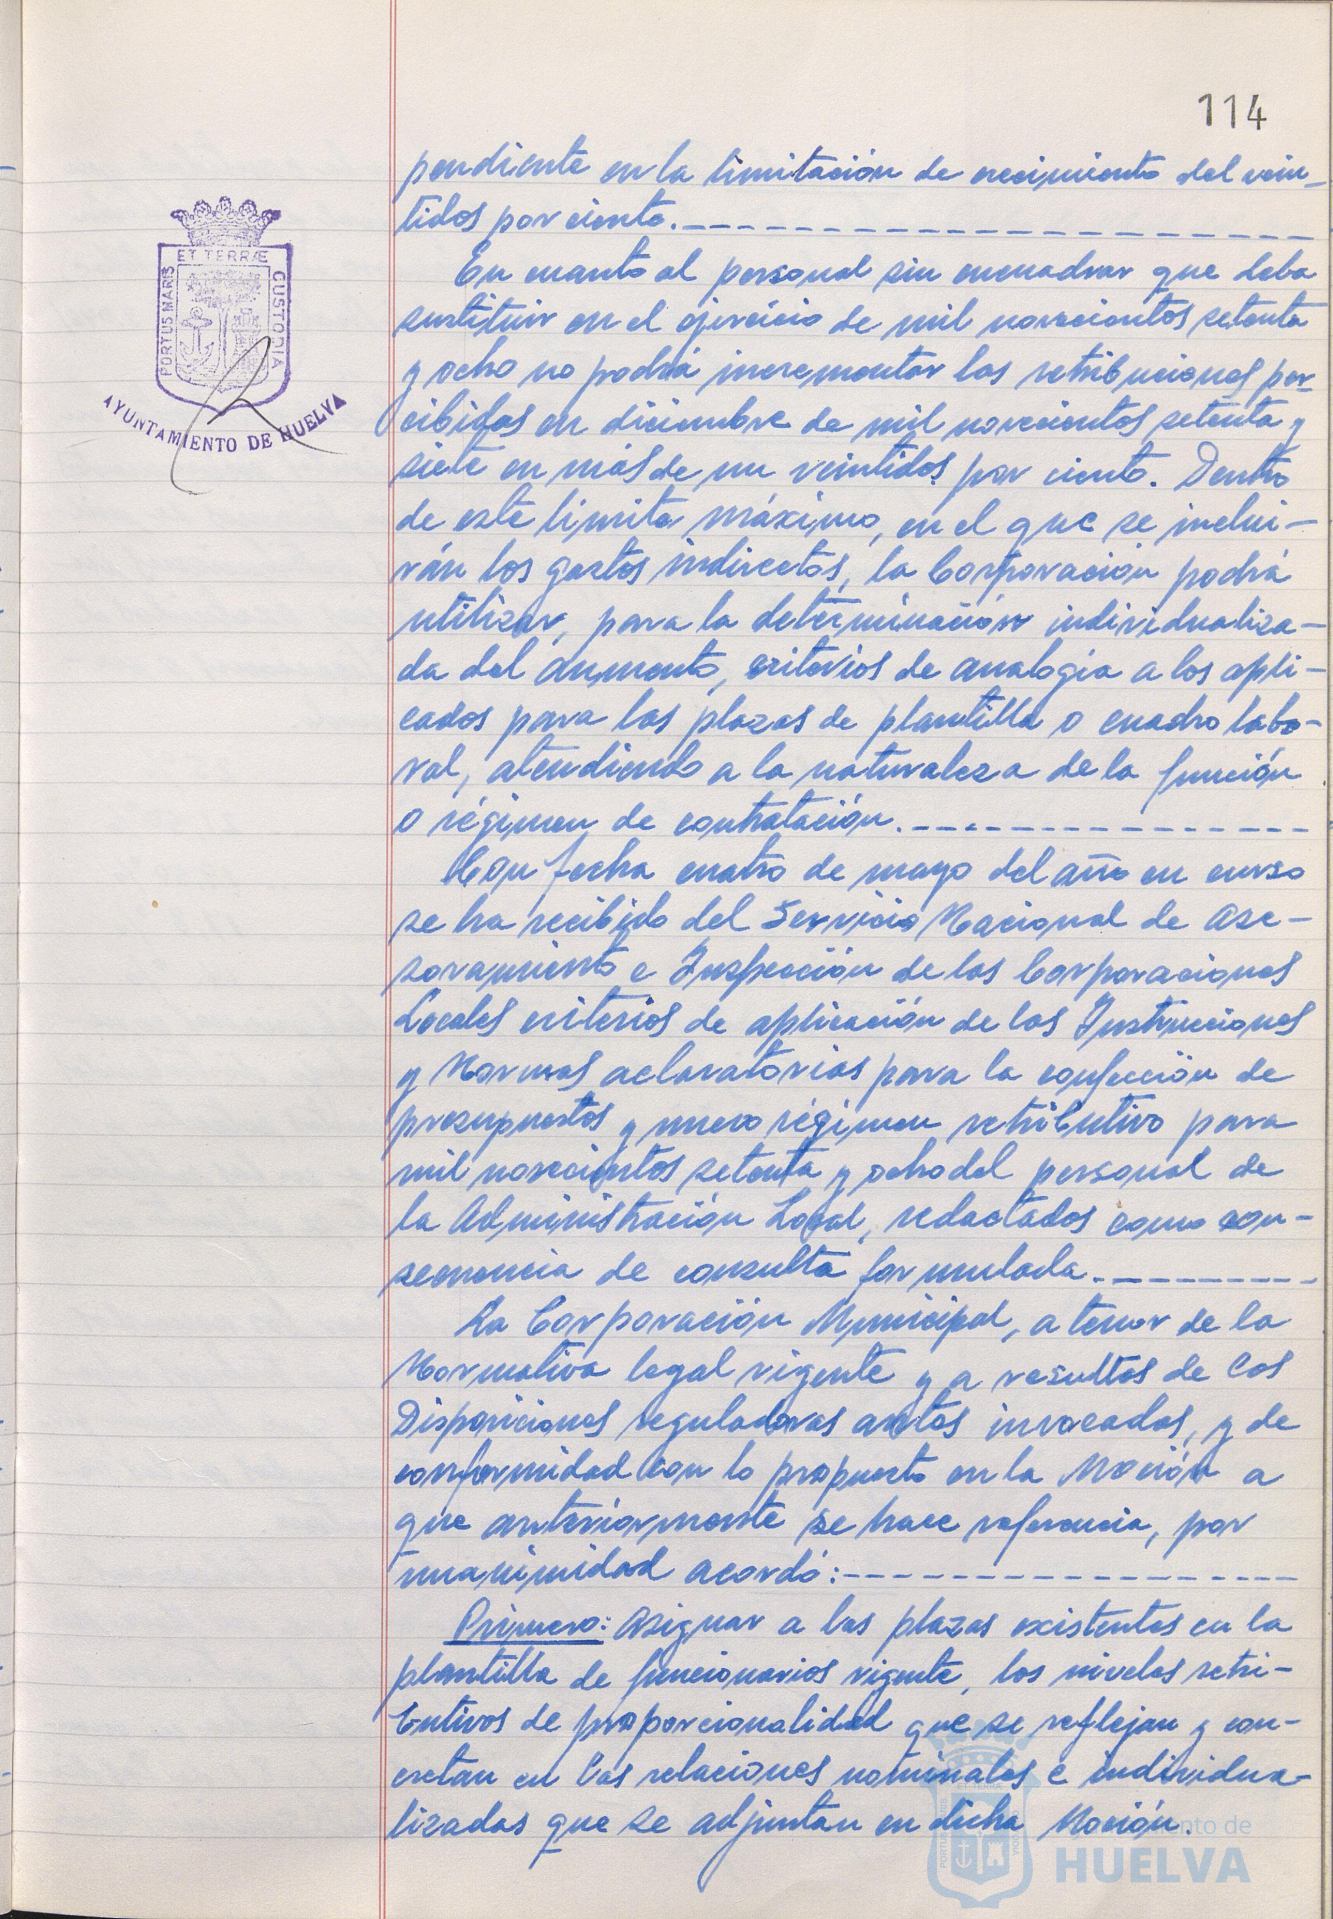 114
pendiente en la limitación de crecimiento del vein-
tidos por ciento.
En cuanto al personal sin encuadrar que deba
sustituir en el ejercicio de mil novecientos setenta
y ocho no podrá incrementar las retribuciones per-
cibidas en diciembre de mil novecientos setenta y
siete en más de un veintidos por ciento. Dentro
de este límite máximo, en el que se inclui-
rán los gastos indirectos, la Corporación podrá
utilizar, para la determinación individualiza-
da del aumento, criterios de analogía a los apli-
cados para las plazas de plantilla o cuadro labo-
ral, atendiendo a la naturaleza de la función
o régimen de contratación.
Con fecha cuatro de mayo del año en curso
se ha recibido del Servicio Nacional de Ase-
soramiento e Inspección de las Corporaciones
Locales criterios de aplicación de las Instrucciones
y Normas aclaratorias para la confección de
presupuestos y nuevo régimen retributivo para
mil novecientos setenta y ocho del personal de
la Administración Local, redactados como con-
secuencia de consulta formulada.
La Corporación Municipal, a tenor de la
Normativa legal vigente y a resultas de las
Disposiciones reguladoras antes invocadas, y de
conformidad con lo propuesto en la Moción a
que anteriormente se hace referencia, por
unanimidad acordó:
Primero: Asignar a las plazas existentes en la
plantilla de funcionarios vigente, los niveles retri-
butivos de proporcionalidad que se reflejan y con-
cretan en las relaciones nominales e individua-
lizadas que se adjuntan en dicha Moción.
PORTUS MARIS
ET TERRÆ
CUSTODIA
AYUNTAMIENTO DE HUELVA
HUELVA